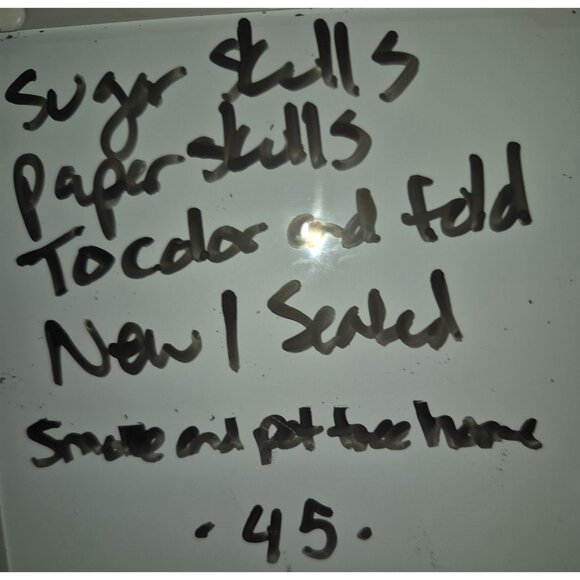 Sugar Skulls
Paper skulls
To color and fold
New / Sealed
Smoke and pet free home
• 45 •